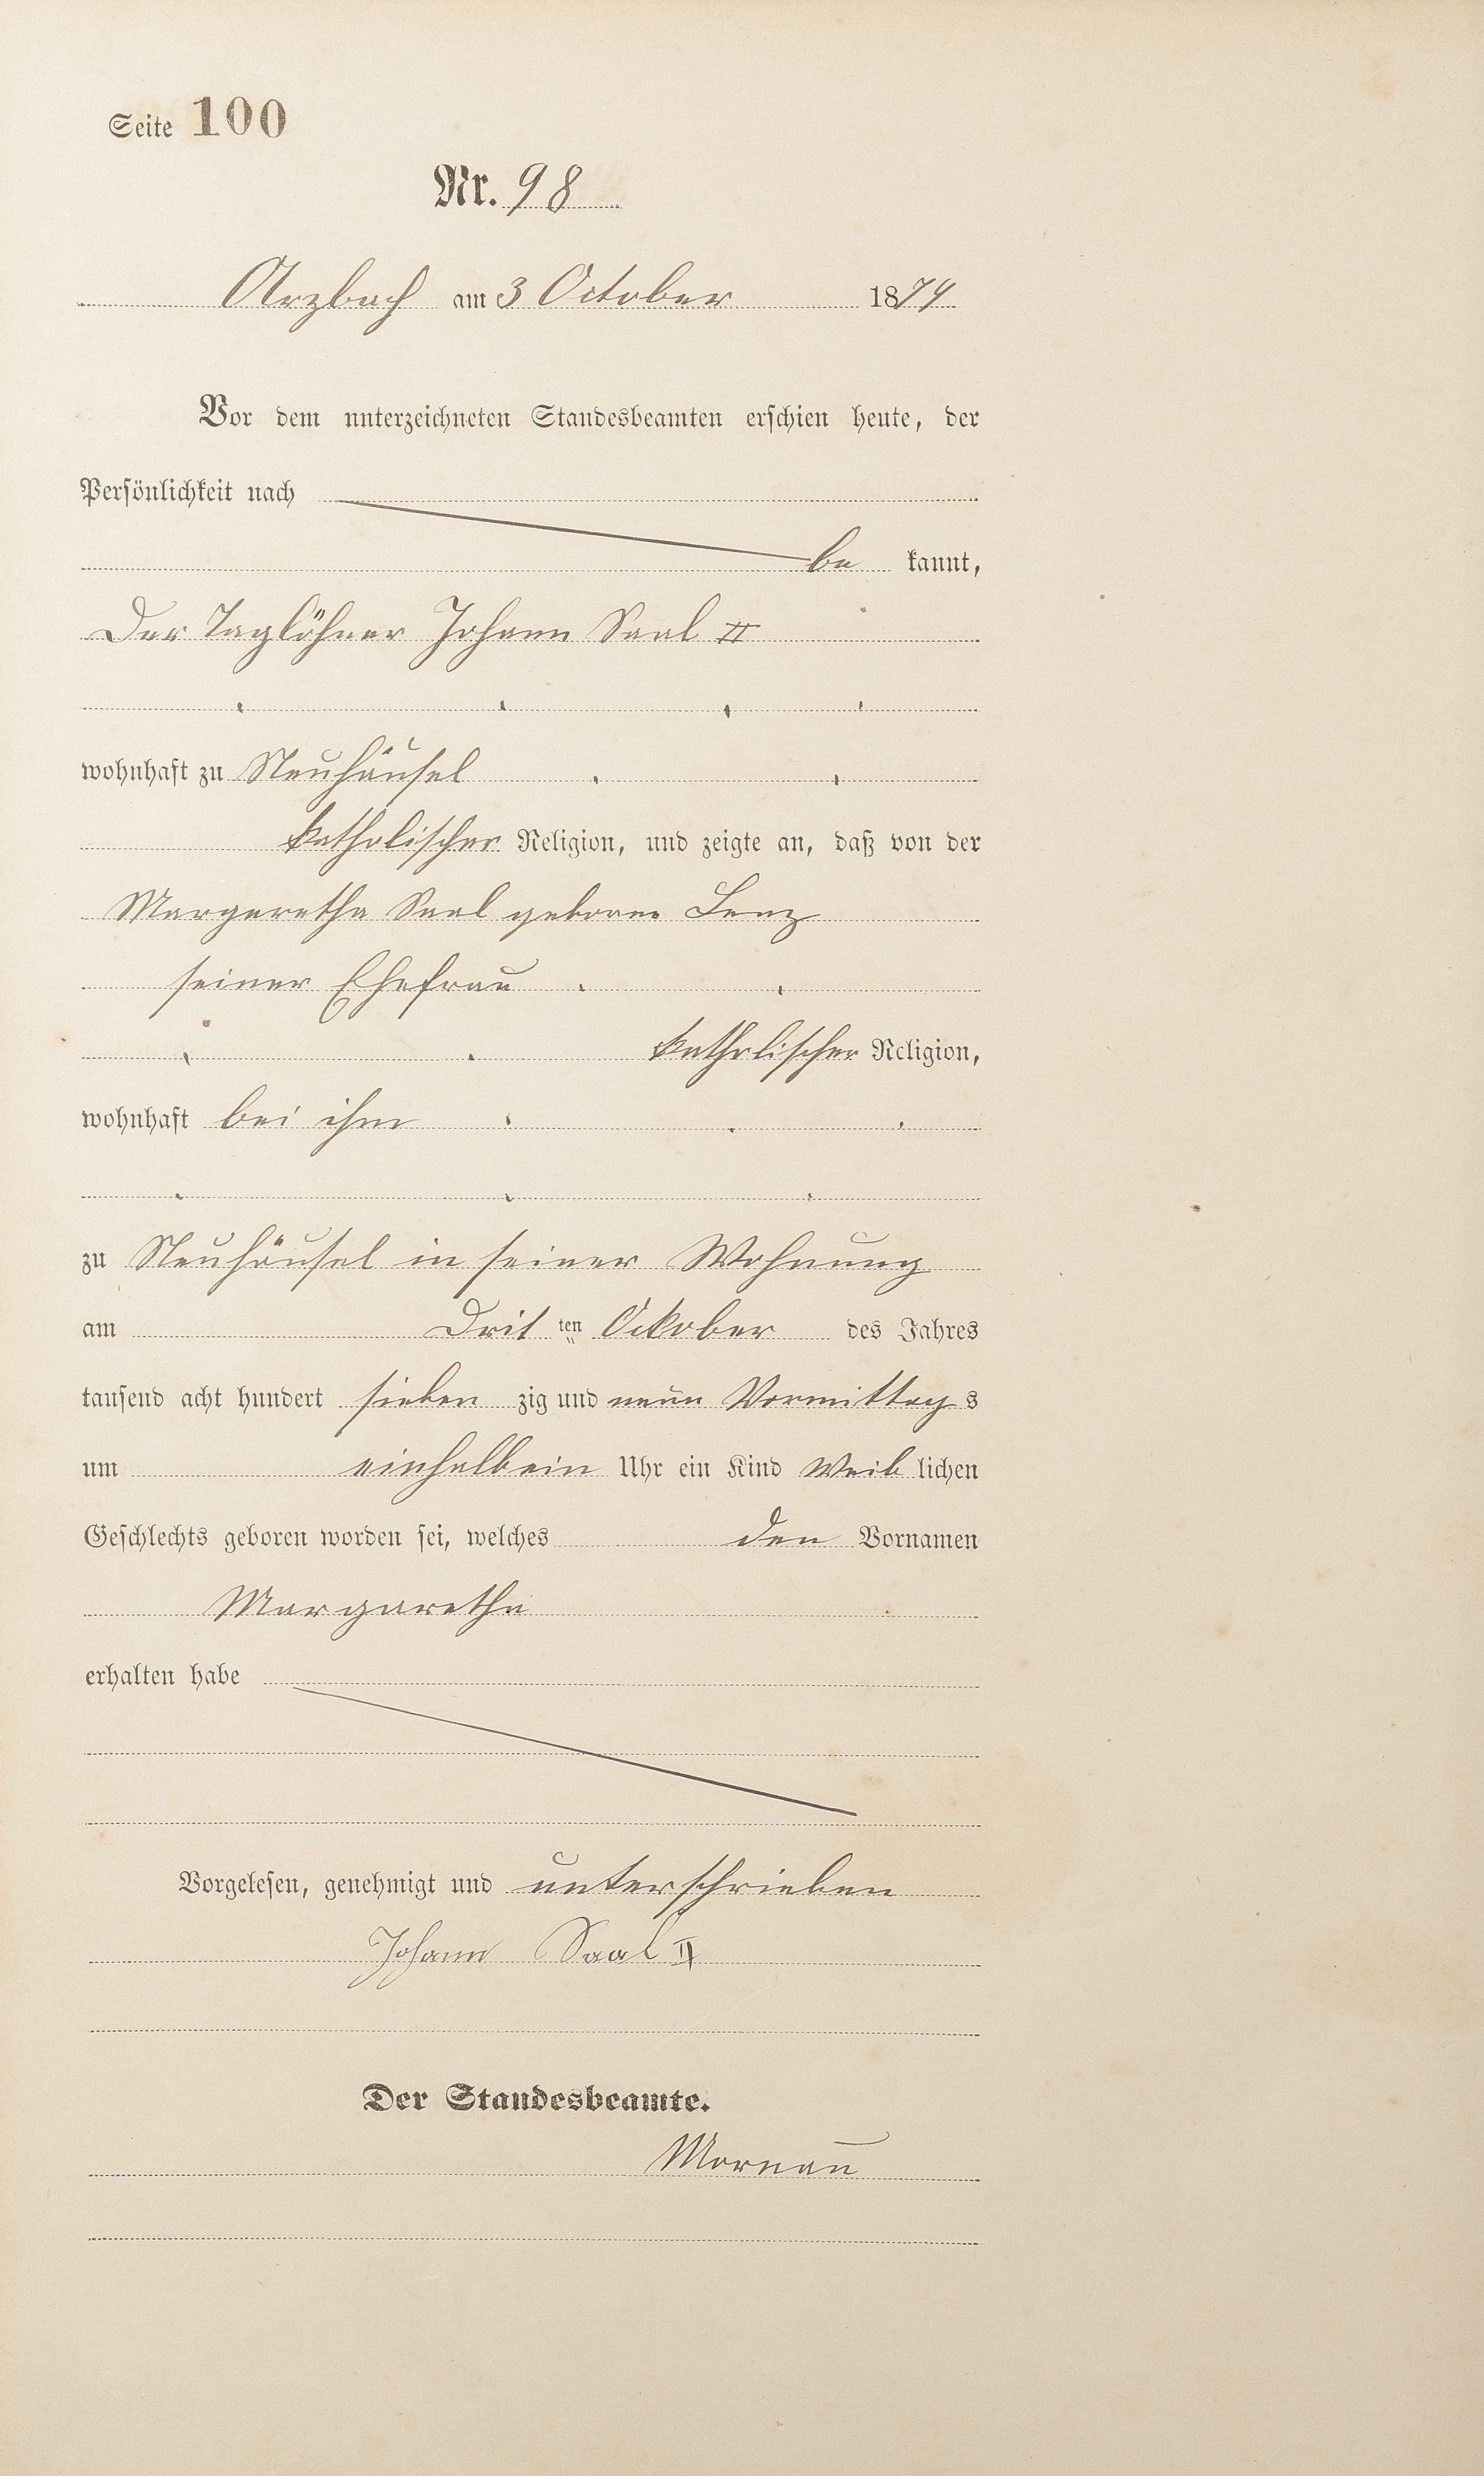 Seite 100
Nr. 98
Arzbach am 3 October 1879
Vor dem unterzeichneten Standesbeamten erschien heute, der
Persönlichkeit nach
be kannt,
Der Taglöhner Johann Saal II
wohnhaft zu Neuhäusel
katholischer Religion, und zeigte an, daß von der
Margaretha Saal geborne Lenz
seiner Ehefrau
katholischer Religion,
wohnhaft bei ihm
zu Neuhäusel in seiner Wohnung
am Drit ten October des Jahres
tausend acht hundert sieben zig und neun Vormittag s
um einhalbein Uhr ein Kind Weib lichen
Geschlechts geboren worden sei, welches den Vornamen
Margaretha
erhalten habe
Vorgelesen, genehmigt und unterschrieben
Johann Saal II
Der Standesbeamte.
Mornau